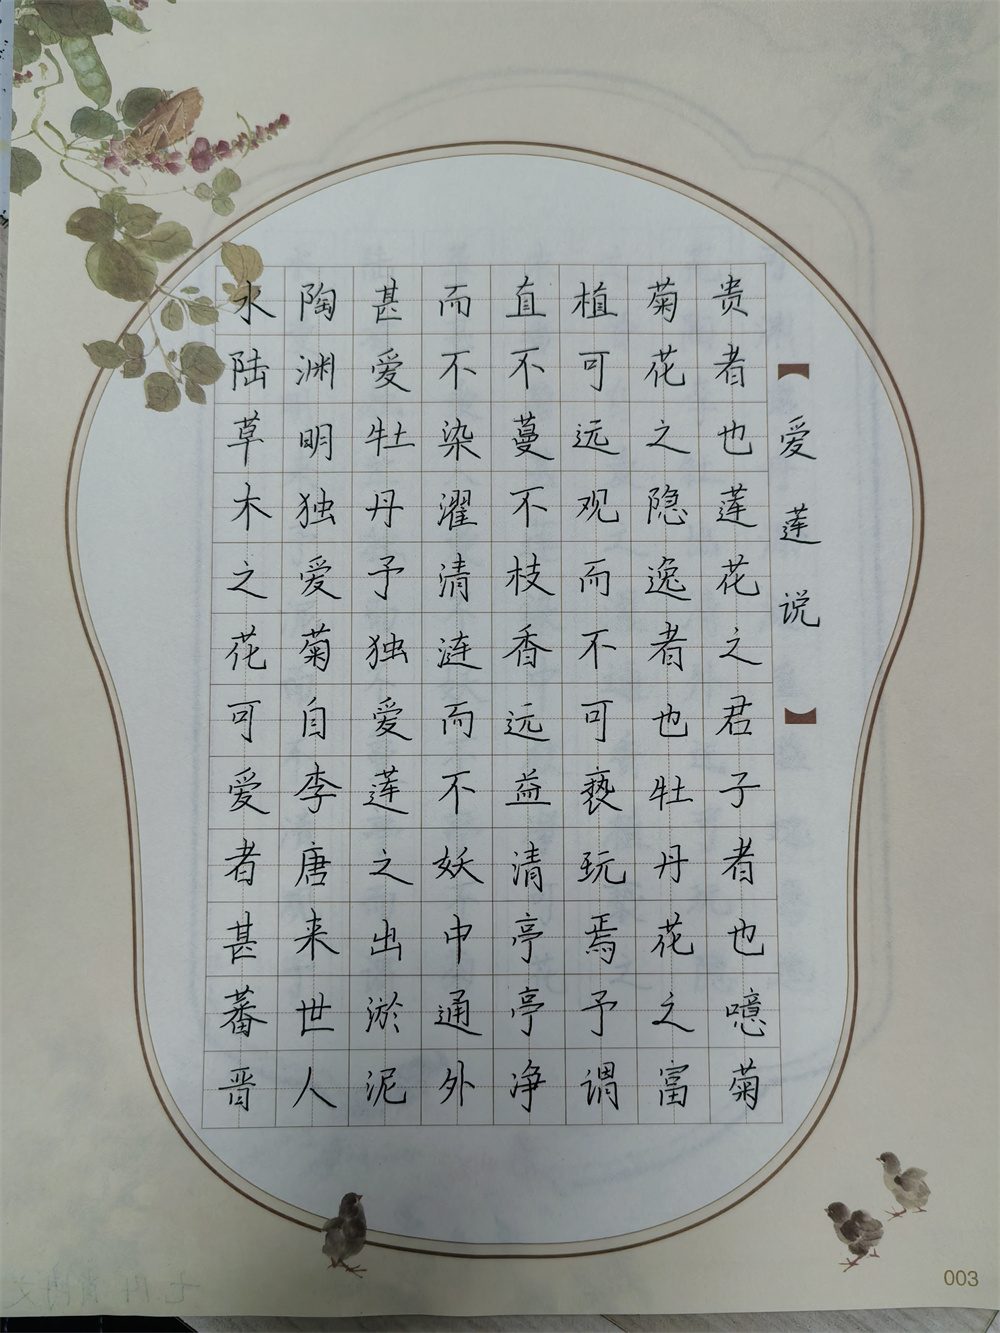 【爱莲说】
水陆草木之花可爱者甚蕃晋
陶渊明独爱菊自李唐来世人
甚爱牡丹予独爱莲之出淤泥
而不染濯清涟而不妖中通外
直不蔓不枝香远益清亭亭净
植可远观而不可亵玩焉予谓
菊花之隐逸者也牡丹花之富
贵者也莲花之君子者也噫菊
003